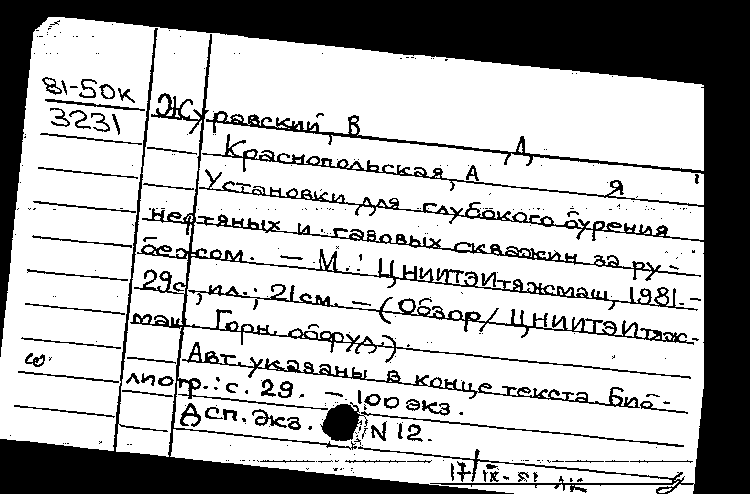 81-50к
3231
Журавский, В Д,
Краснопольская, А Я
Установки для глубокого бурения
нефтяных и газовых скважин за ру-
бежом. - М.: ЦНИИТЭИтяжмаш, 1981.-
29с., ил.; 21см. - (Обзор/ ЦНИИТЭИтяж-
маш. Горн. оборуд.).
Авт. указаны в конце текста. Биб-
лиогр.: с. 29. - 100 экз.
Дсп. Экз. N 12.
17/IX-81